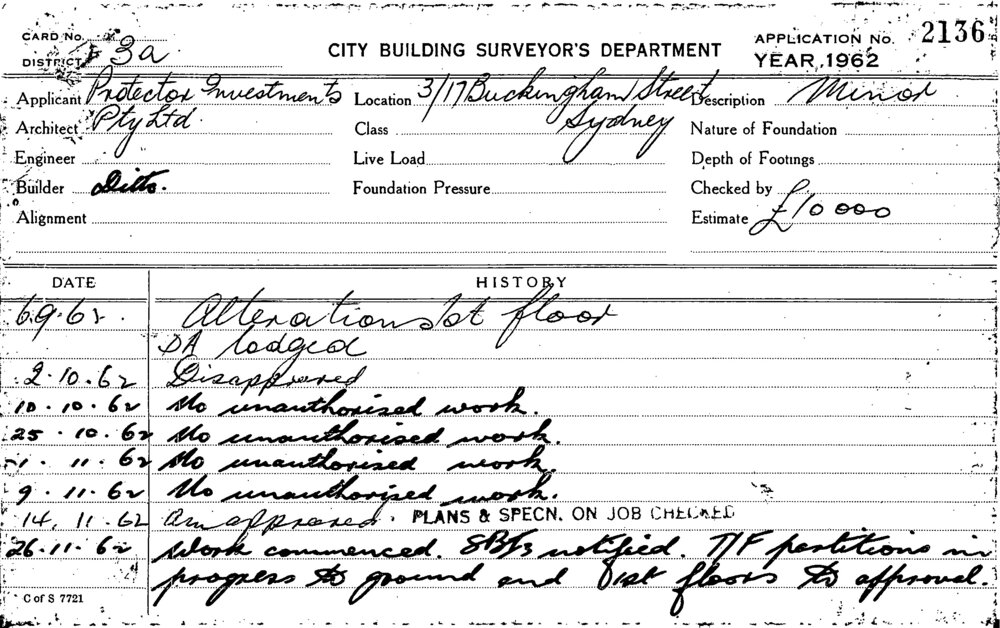 CARD No.
DISTRICT 3a
CITY BUILDING SURVEYOR'S DEPARTMENT
APPLICATION No. 2136
YEAR, 1962
Applicant Protector Investments
Location 3/17 Buckingham Street
Description Minor
Architect Pty Ltd.
Class Sydney
Nature of Foundation
Engineer
Live Load
Depth of Footings
Builder Ditto.
Foundation Pressure
Checked by
Alignment
Estimate £10000
DATE HISTORY
6.9.62. Alterations 1st floor
DA lodged
2.10.62 Disapproved
10.10.62 No unauthorised work.
25.10.62 No unauthorised work.
1.11.62 No unauthorised work.
9.11.62 No unauthorised work.
14.11.62 approved. PLANS & SPECN. ON JOB CHECKED
26.11.62 Work commenced. notified. T/F partitions in
progress to ground and 1st floors to approval.
C of S 7721